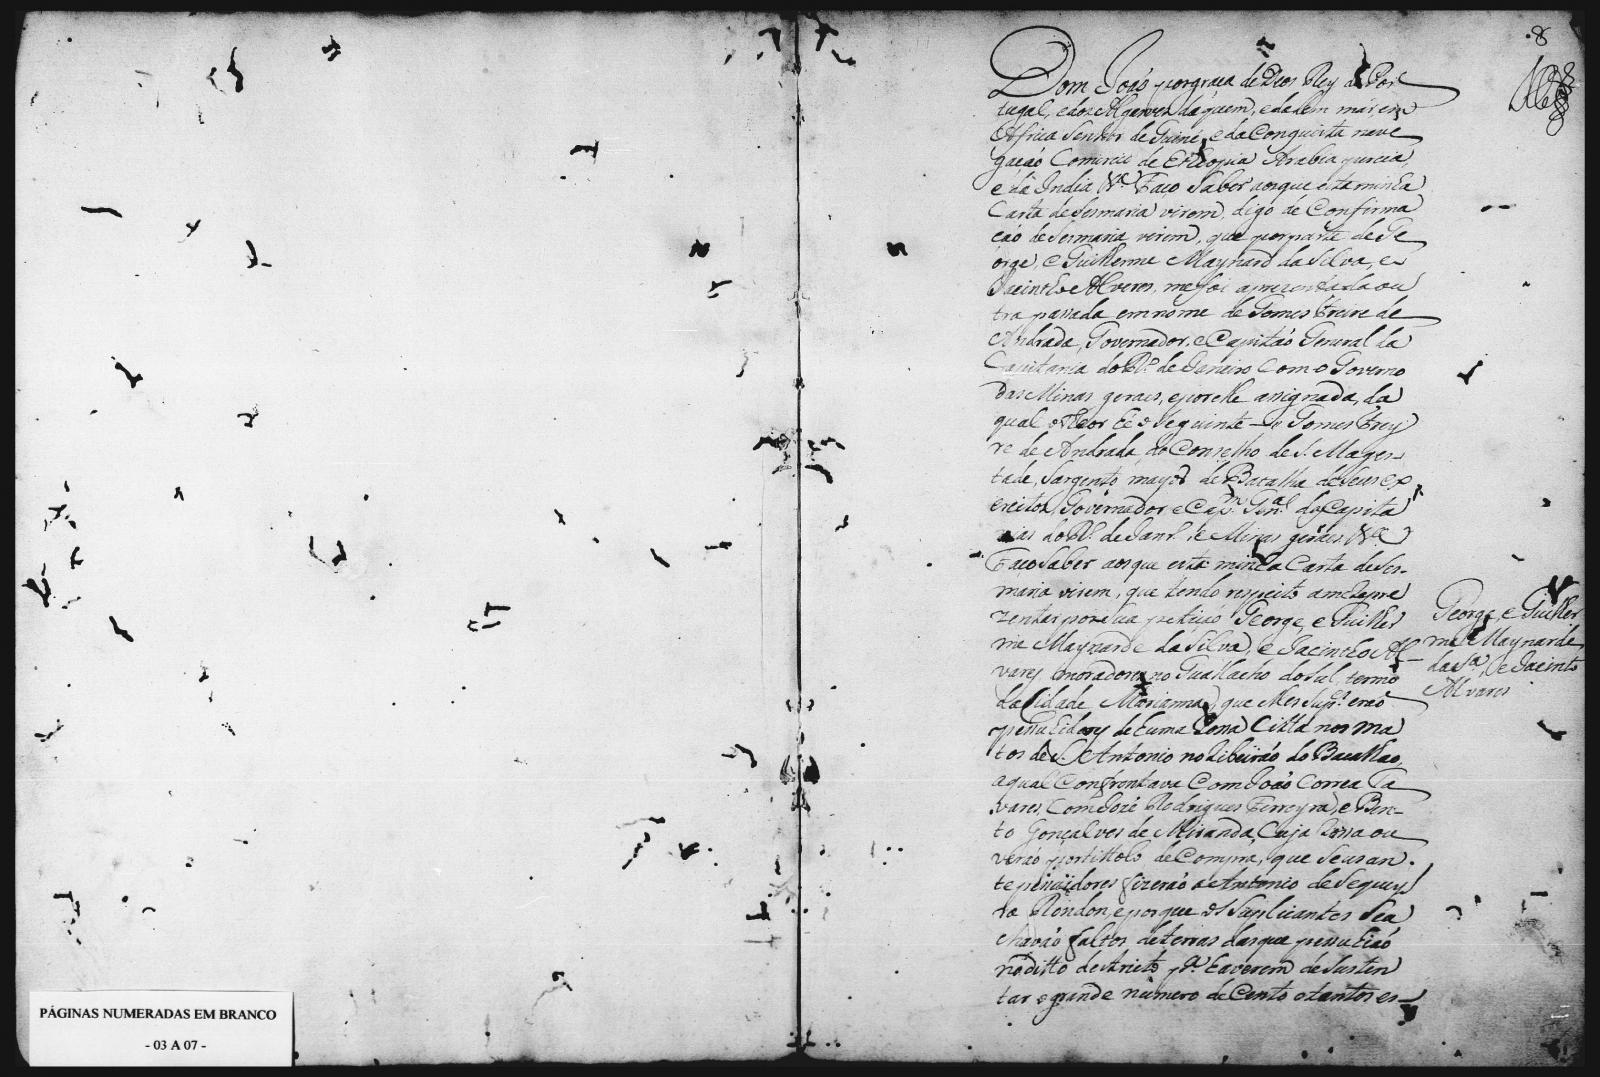 8
Dom Joaõ por graça de Deos Rey de Por
tugal, e dos Algarves daquem, e dalem mar, em
Africa Senhor de Guiné, e da Conquista nave
gaçaõ Comercio de Ethiopia Arabia percia,
e da India &ca Faço Saber aos que esta minha
Carta de Sesmaria virem, digo de Confirma
çaõ de Sesmaria virem, que por parte de Ge
orge, e Guilherme Maynard da Silva, e
Jacintho Alveres, me foi aprezentada ou
tra passada em nome de Gomes Freire de
Andrada, Governador, e Capitaõ General da
Capitania do Rº de Janeiro Com o Governo
das Minas geraes, e por elle assignada, da
qual o theor hé o seguinte Gomes Frey
re de Andrada do Conselho de S. Mages
tade, Sargento mayor de Batalha de Seus ex
ercitos, Governador e Capm Genal da Capita
nias do Rº de Janrº e Minas geraes &ca
Faço Saber aos que esta minha Carta de Ses-
maria virem, que tendo respeito a me Repre
zentar por sua petiçaõ George, e Guilher
me Maynarde da Silva, e Jacintho Al
vares moradores no Gualacho do Sul, termo
da Cidade Marianna, que elles Supes eraõ
pessuhidores de huma Rossa Citta nos Ma
tos de S. Antonio no Ribeiraõ do Bacalhao,
a qual Confrontava Com Joaõ Correa Ta
vares Com Jozé Rodrigues Ferreyra, e Ben-
to Gonçalves de Miranda Cuja Rossa ou
veraõ por tittolo de Compra, que Seus an
te pessuidores fizeraõ a Antonio de Sequey
ra Rondon, e por que os Suplicantes Se a
chavaõ faltos de terras das que pessuhiaõ
no ditto destricto pª haverem de Susten
tar o grande numero de Cento e tantos es-
George, e Guilher
me Maynarde
da Sª, e Jacinto
Alvares
PÁGINAS NUMERADAS EM BRANCO
- 03 A 07 -